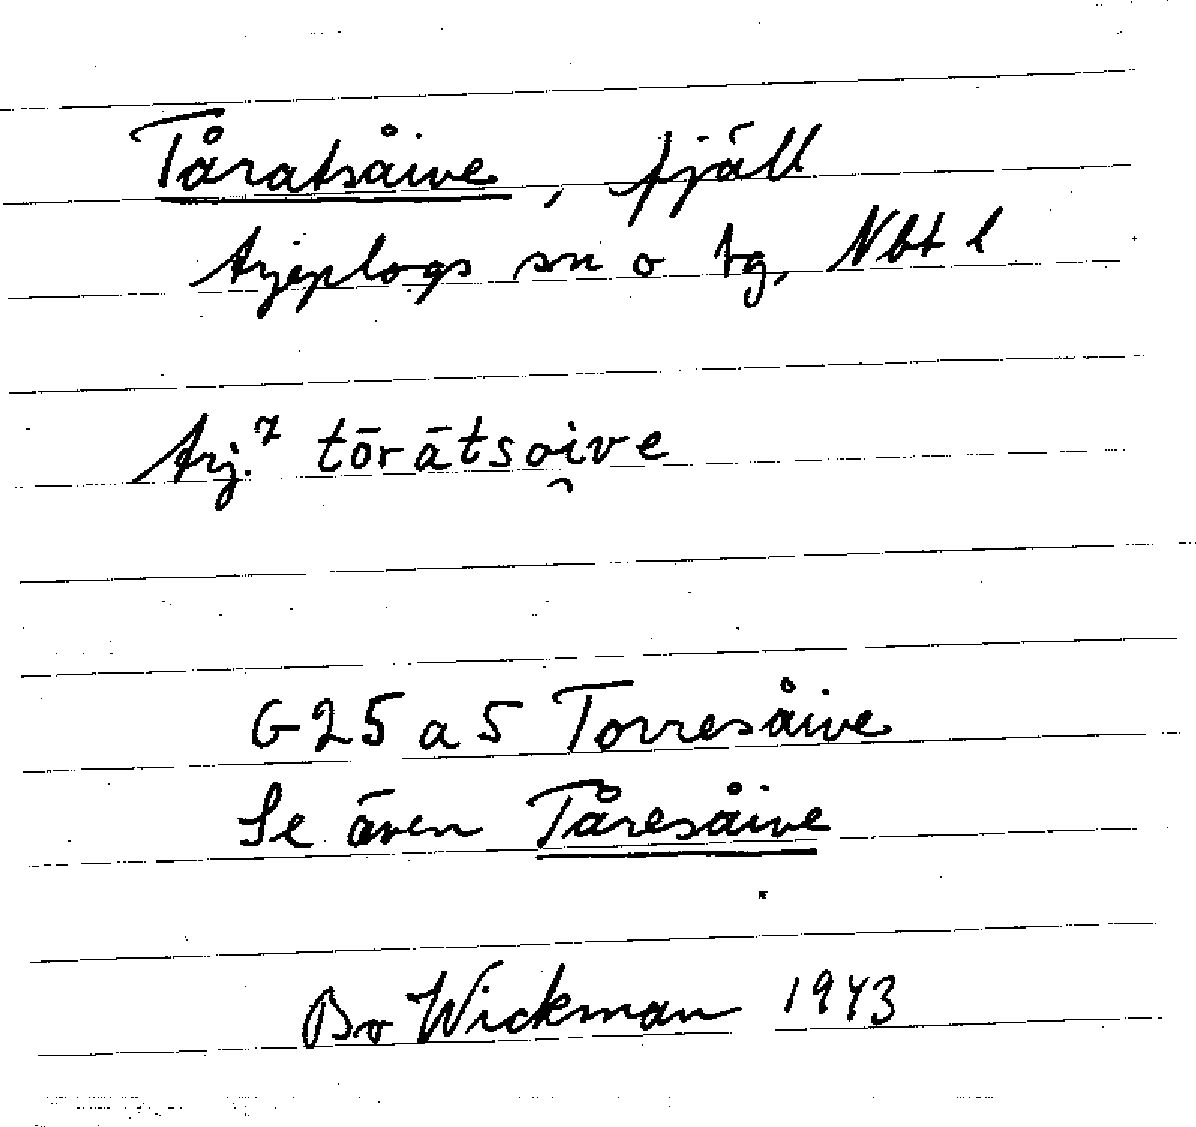 Tåratsåive, fjäll
Arjeplogs sn o tg, Nbt l
Arj.⁷ tōrātsoi̯ve
G25 a 5 Torresåive
Se även Tåresåive
Bo Wickman 1943